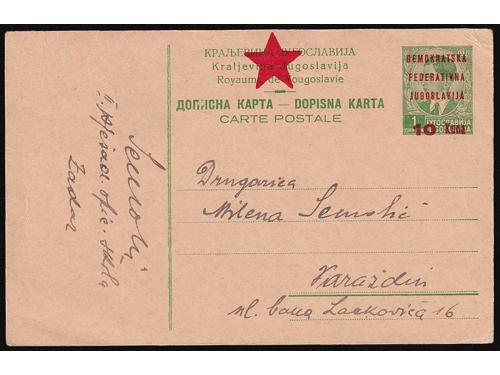 КРАЉЕВИНА ЈУГОСЛАВИЈА
Kraljevina Jugoslavija
Royaume de Yougoslavie
ДОПИСНА КАРТА — DOPISNA KARTA
CARTE POSTALE
DEMOKRATSKA
FEDERATIVNA
JUGOSLAVIJA
1
ЈУГОСЛАВИЈА
JUGOSLAVIJA
10
Drugarica
Milena Semolić
Varaždin
ul. bana Lackovića 16
Semolić
škola
Zadar